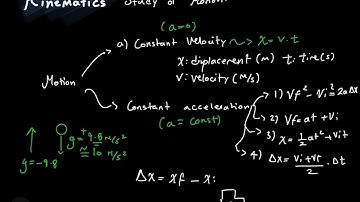 Kinematics Study of Motion
(a=0)
a) Constant Velocity ~> x = v.t
x: displacement (m) t: time(s)
v: velocity (m/s)
Motion
Constant acceleration
(a = const)
1) Vf² - Vi² = 2aΔx
2) Vf = at + Vi
3) x = ½at² + Vit
4) Δx = (Vi+Vf)/2 . Δt
g = +9.8 m/s²
≈ 10 m/s²
g = -9.8
Δx = xf - xi